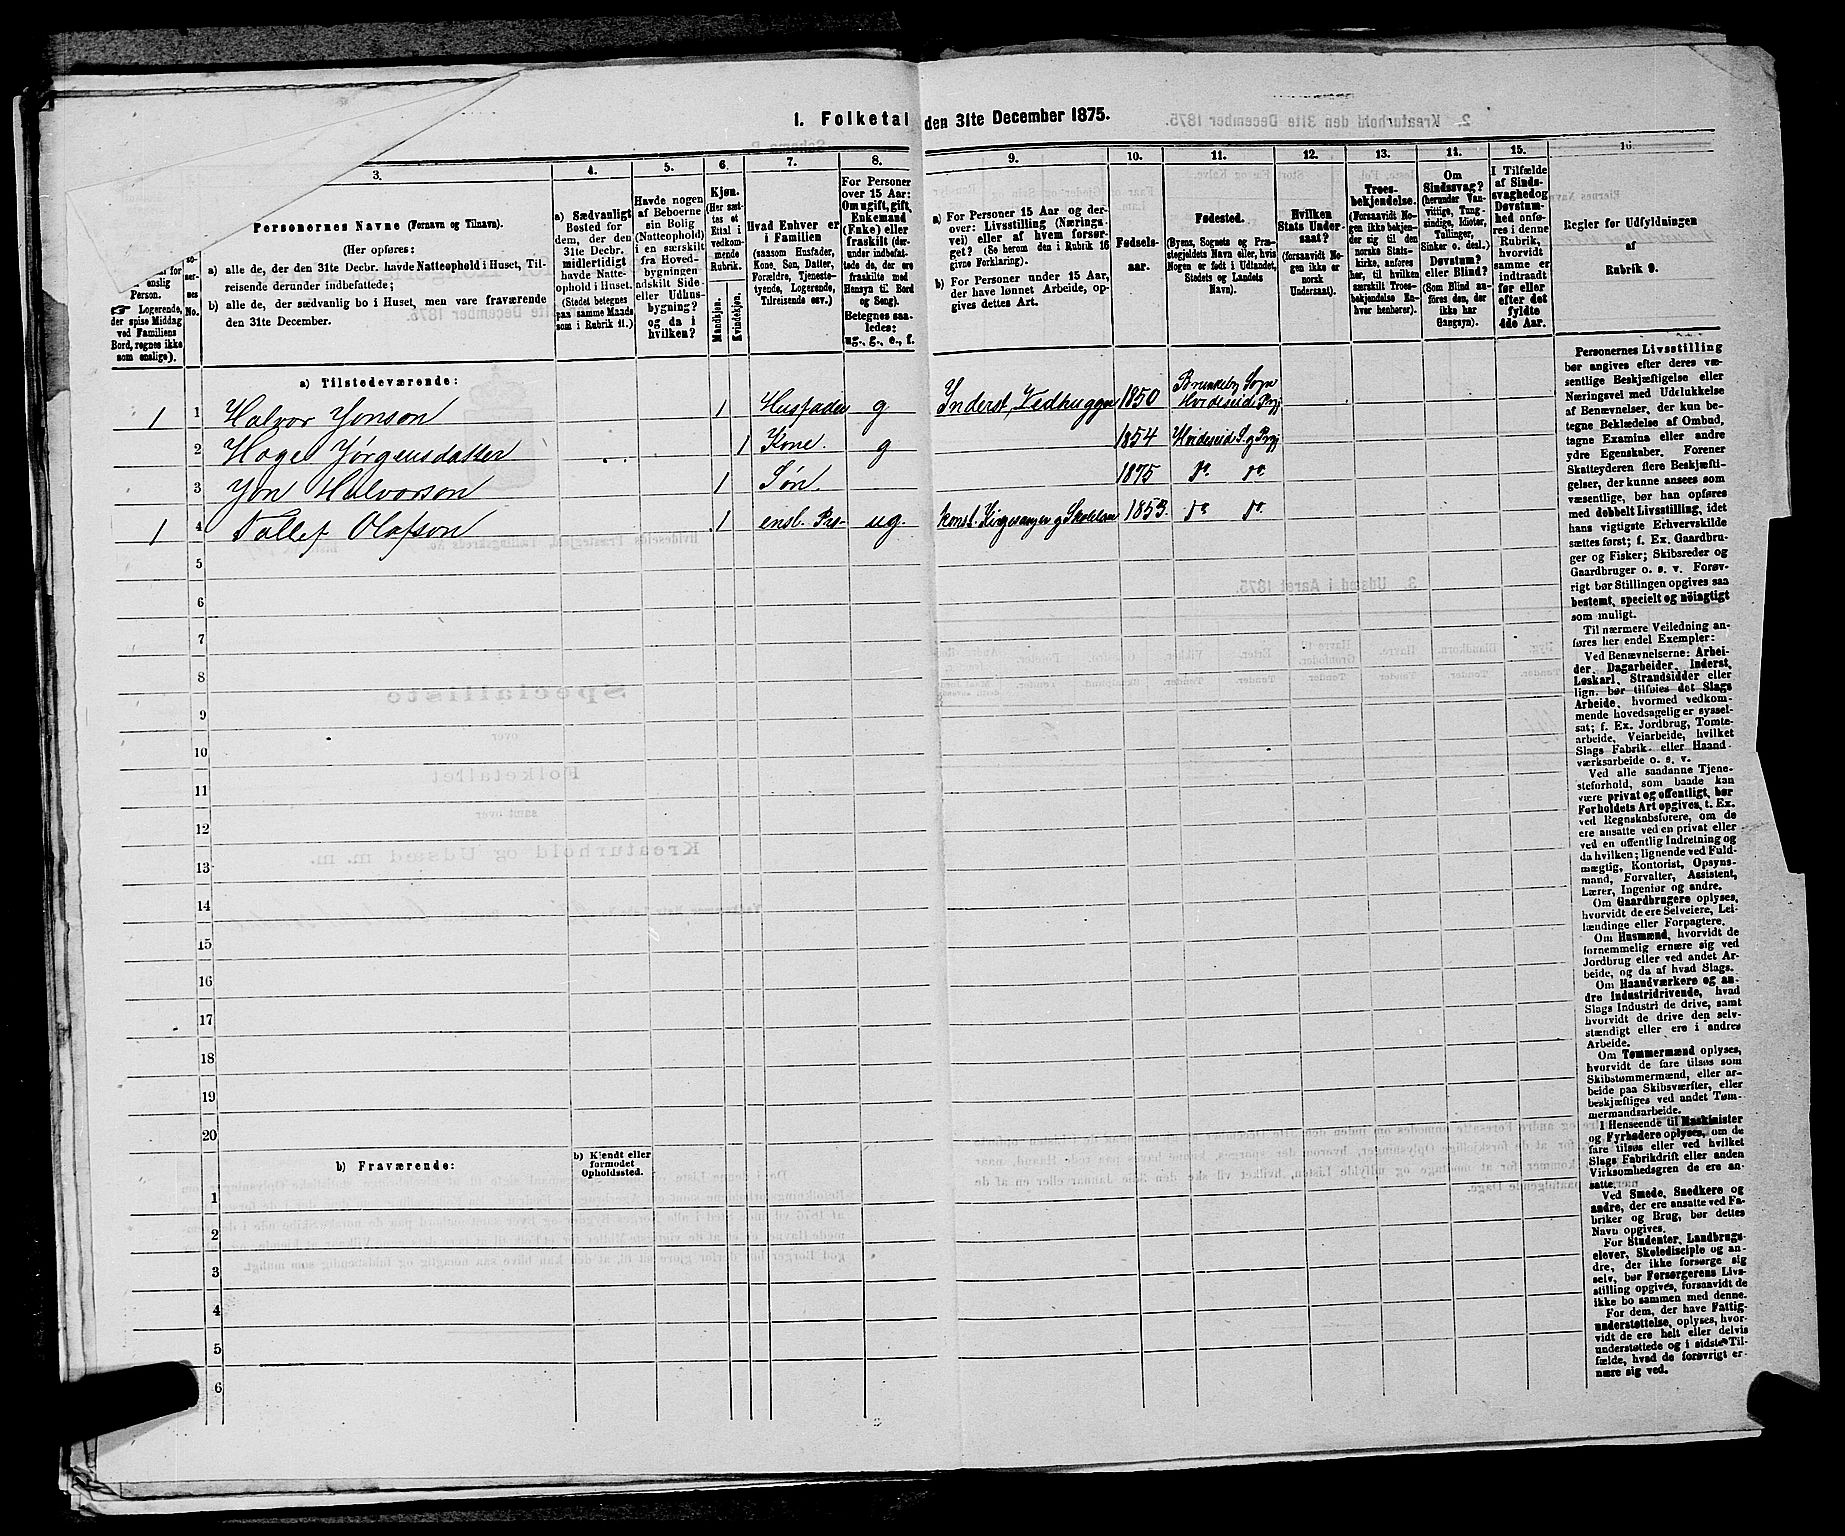 1. Folketal den 31te December 1875.
3.
4.
5.
6.
7.
8.
9.
10.
11.
12.
13.
14.
15.
16.
enslig
Person.
Logerende,
der spise Middag
ved Familiens
Bord, regnes ikke
som enslige).
No.
Personernes Navne (Fornavn og Tilnavn).
(Her opføres:
a) alle de, der den 31te Decbr. havde Natteophold i Huset, Tilreisende derunder indbefattede;
b) alle de, der sædvanlig bo i Huset, men vare fraværende den 31te December.
a) Sædvanligt
Bosted for
dem, der den
31te Decbr.
midlertidigt
havde Natteophold i Huset.
(Stedet betegnes
paa samme Maade
som i Rubrik 11.)
Havde nogen
af Beboerne
sin Bolig
(Natteophold)
i en særskilt
fra Hovedbygningen
adskilt Side-
eller Udhusbygning?
og da i
hvilken?
Kjøn.
(Her sættes et
Ettal i
vedkommende
Rubrik.
Mandkjøn.
Kvindekjøn.
Hvad Enhver er
i Familien
(saasom Husfader,
Kone, Søn, Datter,
Forældre, Tjenestetyende, Logerende,
Tilreisende osv.)
For Personer
over 15 Aar:
Om ugift, gift,
Enkemand
(Enke) eller
fraskilt (derunder indbefattede de, der ere
fraskilte med
Hensyn til Bord
og Seng).
Betegnes saaledes:
ug., g., e., f.
a) For Personer 15 Aar og derover: Livsstilling (Næringsvei) eller af hvem forsørget? (Se herom den i Rubrik 16
givne Forklaring).
b) For Personer under 15 Aar,
der have lønnet Arbeide, opgives dettes Art.
Fødselsaar.
Fødested.
(Byens, Sognets og Præstegjeldets Navn eller, hvis
Nogen er født i Udlandet,
Stedets og Landets
Navn).
Hvilken
Stats Undersaat?
(forsaavidt Nogen ikke er
norsk
Undersaat).
Troesbekjendelse.
(Forsaavidt Nogen ikke bekjender sig til den
norske Statskirke, anføres
her, til hvilken
særskilt Troesbekjendelse Enhver henhører).
Om
Sindssvag?
(herunder Vanvittige, Tungsindige, Idioter,
Tullinger,
Sinker o. desl.)
Døvstum?
eller Blind?
(Som Blind anføres den, der
ikke har
Gangsyn).
I Tilfælde
af Sindssvaghed og
Døvstumhed anføres i denne
Rubrik,
hvorvidt
samme er
indtraadt
før eller
efter det
fyldte
4de Aar.
Regler for Udfyldningen
af
Rubrik 9.
a) Tilstedeværende:
1 1 Halvor Jonson 1 Husfader g Inderst, Vedhugger 1850 Brunkeby Sogn Hvideseid Prgj
2 Hoge Jørgensdatter 1 Kone. g 1854 Hvideseid S. g Prgj
3 Jon Halvorson 1 Søn. 1875 do. do.
1 4 Tallef Olafson 1 ensl. Prs- ug. konst. Kirgesanger g Skolelær 1853 do. do.
5
6
7
8
9
10
11
12
13
14
15
16
17
18
19
20
b) Fraværende:
b) Kjendt eller
formodet
Opholdssted.
1
2
3
4
5
6
Personernes Livsstilling
bør angives efter deres væsentlige Beskjæftigelse eller
Næringsvei med Udelukkelse
af Benævnelser, der kun betegne Beklædelse af Ombud,
tagne Examina eller andre
ydre Egenskaber. Forener
Skatteyderen flere Beskjæftigelser, der kunne ansees som
væsentlige, bør han opføres
med dobbelt Livsstilling, idet
hans vigtigste Erhvervskilde
sættes først; f. Ex. Gaardbruger og Fisker; Skibsreder og
Gaardbruger o. s. v. Forøvrigt bør Stillingen opgives saa
bestemt, specielt og nöiagtigt
som muligt.
Til nærmere Veiledning anføres her endel Exempler:
Ved Benævnelserne: Arbeider, Dagarbeider, Inderst,
Løskarl, Strandsidder eller
lign. bør tilføies det Slags
Arbeide, hvormed vedkommende hovedsagelig er sysselsat; f. Ex. Jordbrug, Tomtearbeide, Veiarbeide, hvilket
Slags Fabrik- eller Haandværksarbeide o. s. v.
Ved alle saadanne Tjenesteforhold, som baade kan
være privat og offentligt, bør
Forholdets Art opgives, t. Ex.
ved Regnskabsførere, om de
ere ansatte ved en privat eller
ved en offentlig Indretning og
da hvilken; lignende ved Fuldmægtig, Kontorist, Opsynsmand, Forvalter, Assistent,
Lærer, Ingeniør og andre.
Om Gaardbrugere oplyses,
hvorvidt de ere Selveiere, Leilændinge eller Forpagtere.
Om Husmænd, hvorvidt de
fornemmelig ernære sig ved
Jordbrug eller ved andet Arbeide, og da af hvad Slags.
Om Haandværkere og andre Industridrivende, hvad
Slags Industri de drive, samt
hvorvidt de drive den selvstændigt eller ere i andres
Arbeide.
Om Tømmermænd oplyses,
hvorvidt de fare tilsøs som
Skibstømmermænd, eller arbeide paa Skibsværfter, eller
beskjæftiges ved andet Tømmermandsarbeide.
I Henseende til Maskinister
og Fyrbødere oplyses, om de
fare tilsøs eller ved hvilket
Slags Fabrikdrift eller anden
Virksomhedsgren de ere ansatte.
Ved Smede, Snedkere og
andre, der ere ansatte ved Fabriker og Brug, bør dettes
Navn opgives.
For Studenter, Landbrugselever, Skoledisciple og andre, der ikke forsørge sig
selv, bør Forsørgerens Livsstilling opgives, forsaavidt de
ikke bo sammen med denne.
For dem, der have Fattigunderstøttelse, oplyses, hvorvidt de ere helt eller delvis
understøttede og i sidste Tilfælde, hvad de forøvrigt ernære sig ved.